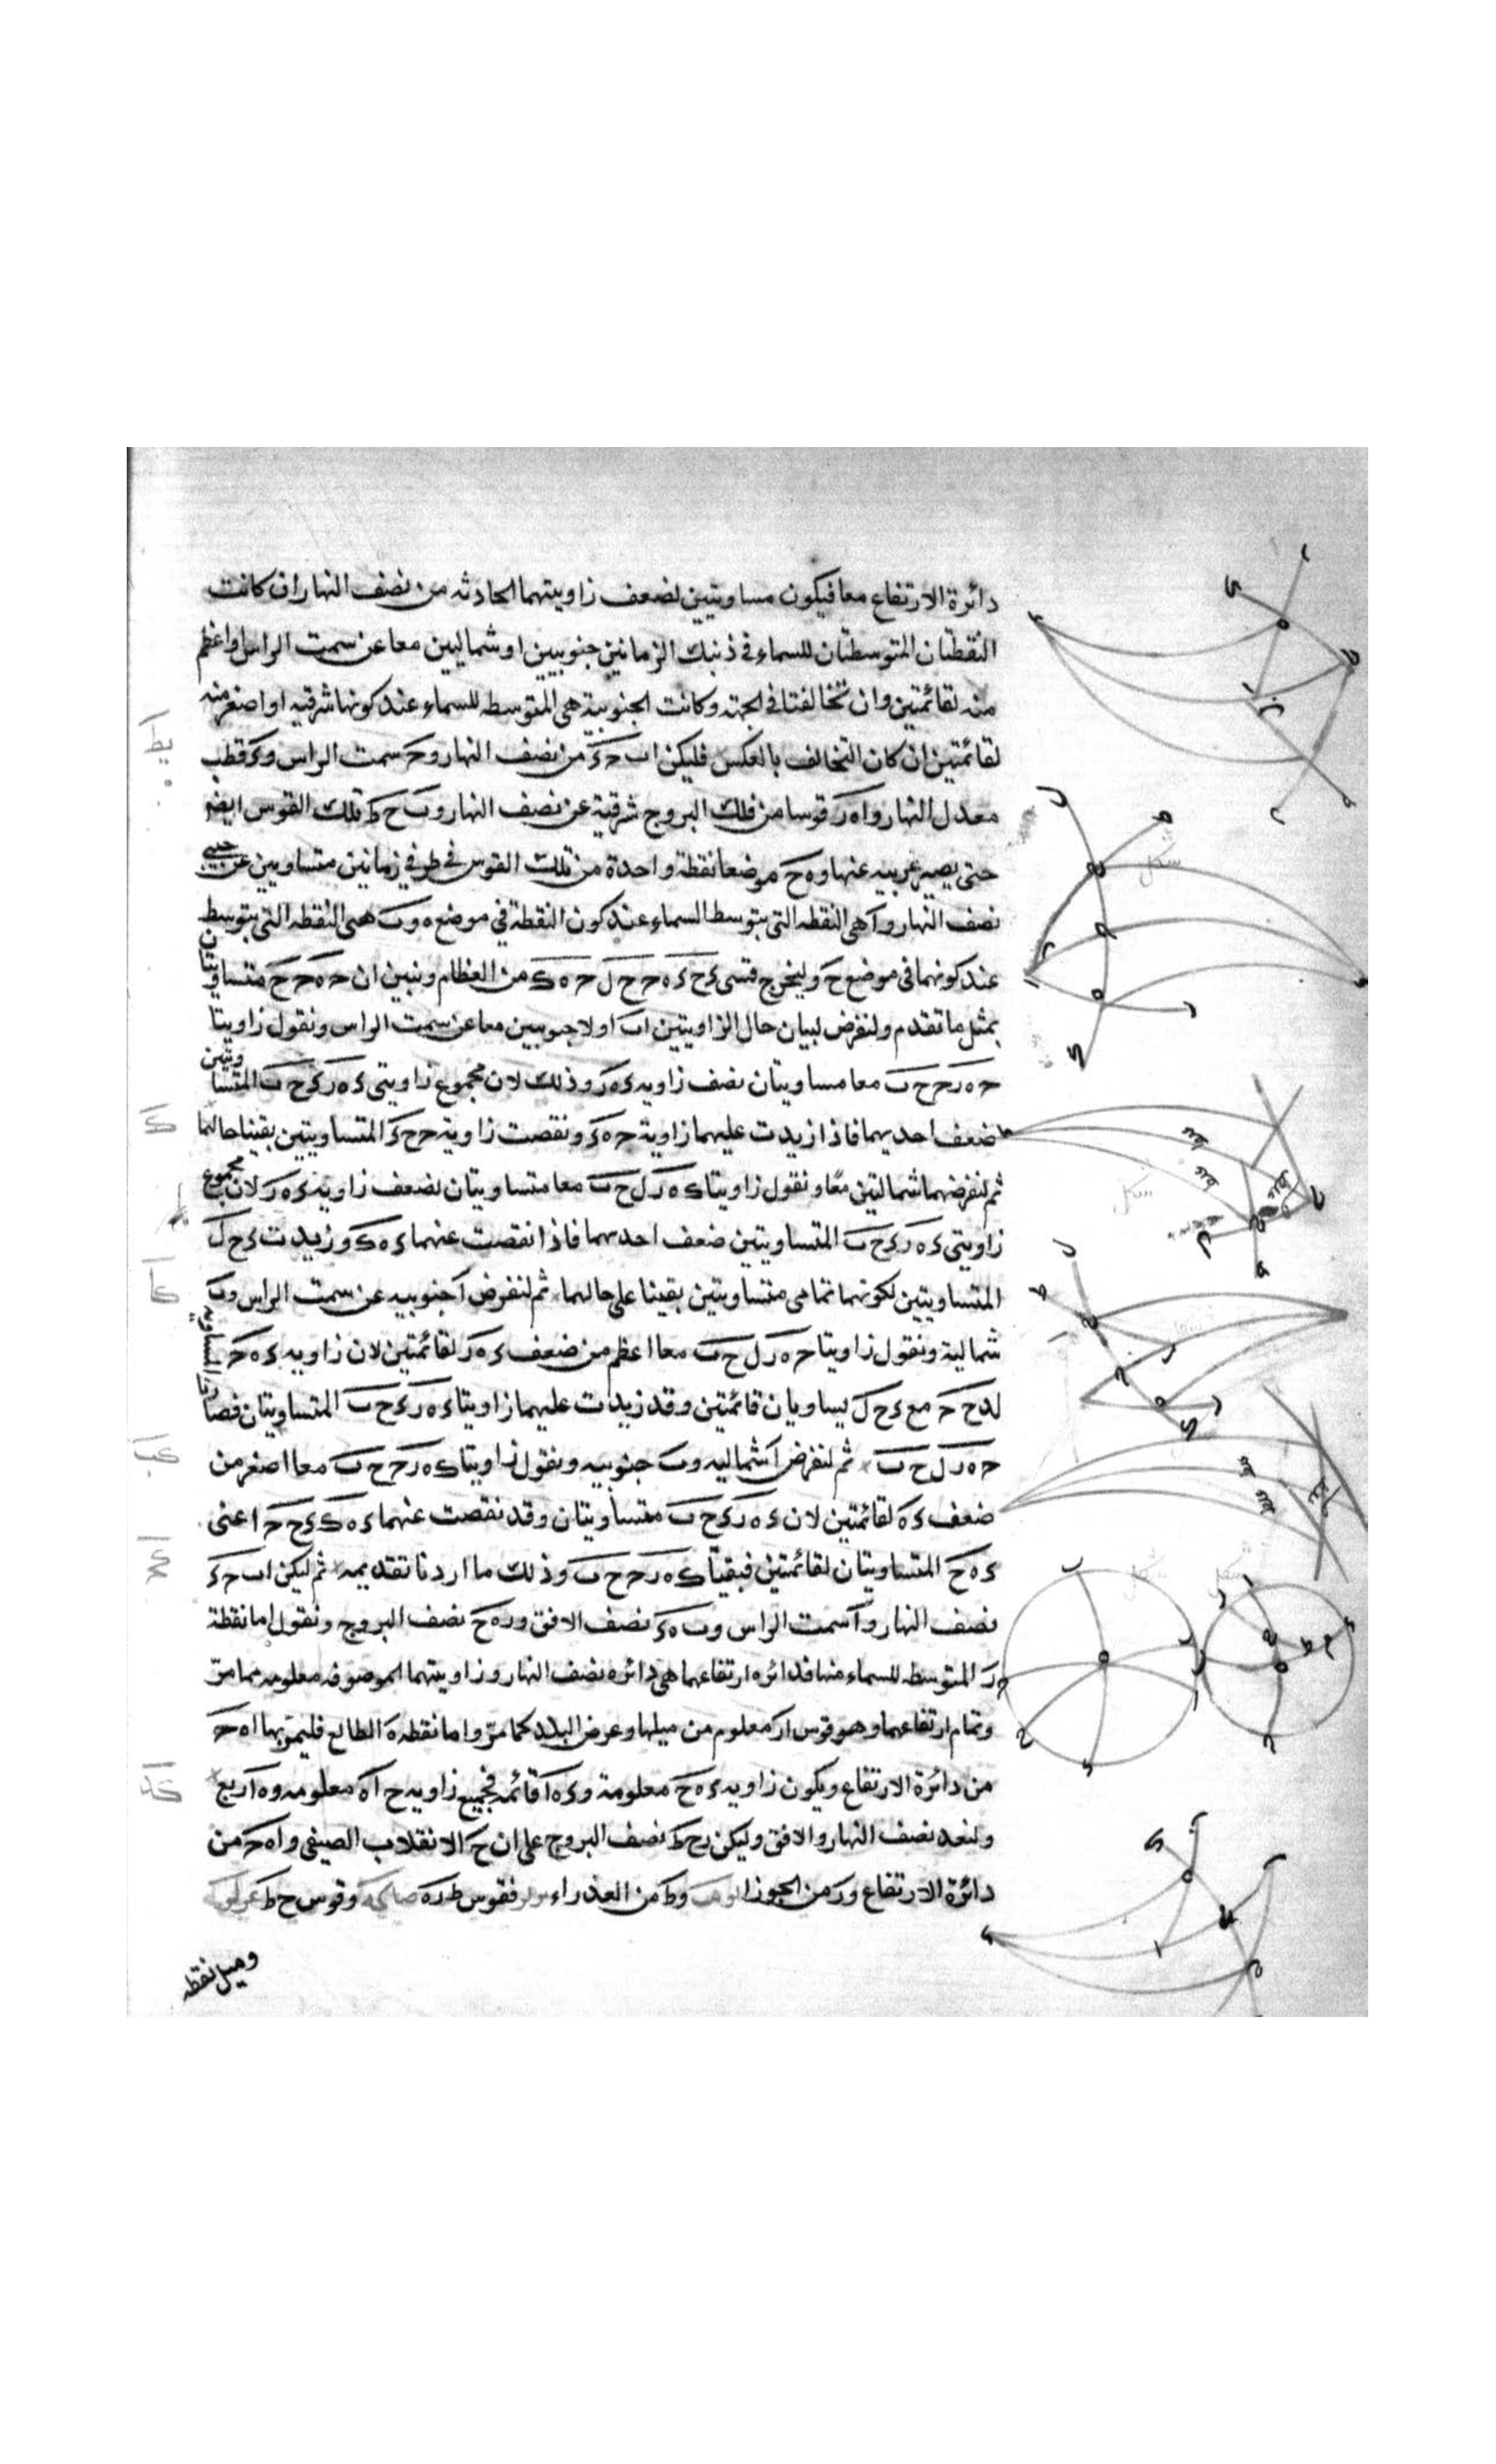 دائرة الارتفاع معا فيكون مساويتين لضعف زاويتهما الحادثه من نصف النهار ان كانت
النقطتان المتوسطتان للسماء فى ذنبك الزمانين جنوبيين او شماليين معا عن سمت الراس او اعظم
منه لقائمتين وان تخالفتا فى الجهة وكانت الجنوبية هى المتوسطه للسماء عند كونها شرقيه او اصغر منه
لقائمتين ان كان التخالف بالعكس فليكن ا ب ح ء من نصف النهار و ح سمت الراس و ء قطب
معدل النهار و ا ه ر قوسا من فلك البروج شرقية عن نصف النهار و ب ح ط تلك القوس ايضا
حتى يصير غربيه عنها و ه ح موضعا نقطة واحدة من تلك القوس فى طرفي زمانين متساويين عن جنبى
نصف النهار و ا هى النقطه التى يتوسط السماء عند كون النقطة فى موضع ه و ب هى النقطه التى يتوسط
عند كونهما فى موضع ح وليخرج قسى ء ح ء ه ح ح ل ح ه ك من العظام ونبين ان ح ه ح ح متساويتان
بمثل ما تقدم ولنفرض لبيان حال الزاويتين ا ب اولا جنوبيين معا عن سمت الراس ونقول زاويتا
ح ه ر ح ح ب معا مساويتان نصف زاويه ء ه ر وذلك لان مجموع زاويتى ء ه ر ء ح ب المتساويتين
ضعف احديهما فاذا زيدت عليهما زاوية ح ه ء ونقصت زاوية ح ح ء المتساويتين بقينا حالهما
ثم لنفرضهما شماليتين معا ونقول زاويتا ك ه ر ل ح ب معا متساويتان لضعف زاويه ء ه ر لان مجموع
زاويتى ء ه ر ء ح ب المتساويتين ضعف احديهما فاذا نقصت عنهما ء ه ك وزيدت ء ح ل
المتساويتين لكونهما تمامى متساويتين بقينا على حالهما ثم لنفرض ا جنوبيه عن سمت الراس و ب
شمالية ونقول زاويتا ح ه ر ل ح ب معا اعظم من ضعف ء ه ر لقائمتين لان زاويه ء ه ح
ح ح مع ء ح ل يساويان قائمتين وقد زيدت عليهما زاويتا ء ه ر ء ح ب المتساويتان فصارتا
ح ه ر ل ح ب ثم لنفرض ا شماليه و ب جنوبيه ونقول زاويتا ك ه ر ح ح ب معا اصغر من
ضعف ء ه لقائمتين لان ء ه ر ء ح ب متساويتان وقد نقصت عنهما ء ه ك ء ح ح اعنى
ء ه ح المتساويتان لقائمتين فبقيتا ك ه ر ح ح ب وذلك ما اردنا تقديمه ثم ليكن ا ب ح ء
نصف النهار و ا سمت الراس و ب ه ء نصف الافق و ر ه ح نصف البروج ونقول اما نقطة
ر المتوسطه للسماء منها فدائره ارتفاعها هى دائره نصف النهار وزاويتهما الموصوفه معلومه مما مر
وتمام ارتفاعهما وهو قوس ا ر معلوم من ميلها وعرض البلد كما مر واما نقطة ه الطالع فليمر بها ا ه ح
من دائرة الارتفاع ويكون زاويه ء ه ح معلومة و ء ه ا قائمه فجميع زاويه ح ا ه معلومه و ه ا ربع
ولنعد نصف النهار والافق وليكن ر ح ط نصف البروج على ان ح الانقلاب الصيفى و ا ه ح من
دائرة الارتفاع و ر من الجوزا و ط من العذراء فقوس ط ر ه وقوس ح ط
وميل نقطه
يط
ك
كا
كب
كج
كد
شكل
شكل
شكل
شكل